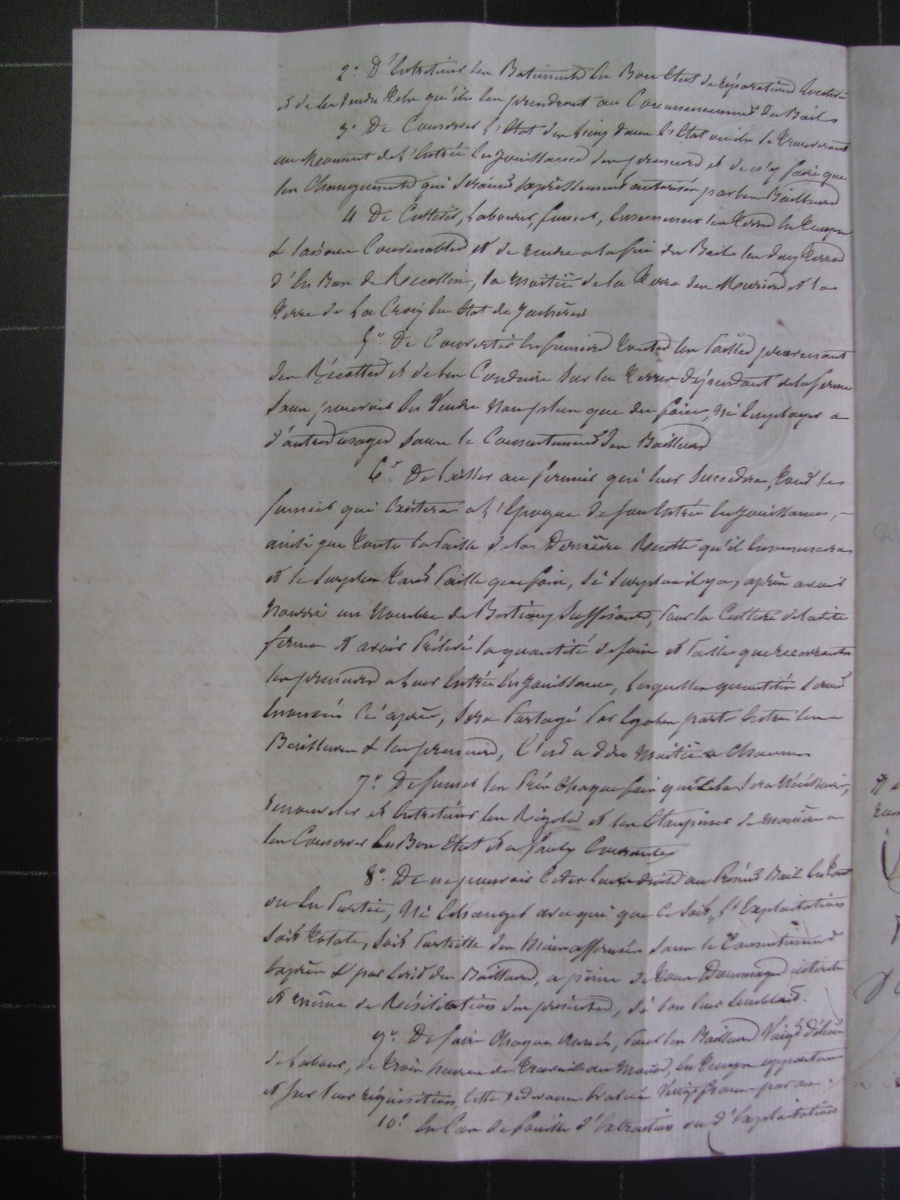 2° D'Entretenir les Batiments en Bon Etat de réparations locative
et de les rendre tels qu'ils les prendront au Commencement du Bail
3° De Conserver l'Etat des lieux dans l'Etat où ils le trouveront
au Moment de l'Entrée en Jouissance des preneurs et de n'y faire que
les Changements qui seraient expressément autorisés par les Bailleurs
4 De Cultiver, Labourer, fumer, Ensemencer les Terres en Temps
& saisons Convenables et de rendre a la fin du Bail les deux Terres
d' en Bas de , la moitié de la Terre des Muriers et la
Terre de La Croix en Etat de Jachères
5° De Convertir en fumiers Toutes les Pailles provenant
des Récoltes et de les Conduire sur les Terres dépendant de la ferme
sans pouvoir en Vendre Non plus que du foin, Ni Employer a
d'autres usages sans le Consentement des Bailleurs
6° De laisser au fermier qui leur succédera, Tous les
fumiers qui Existera a l'Epoque de son Entrée en Jouissance,
ainsi que Toute la Paille de la Dernière Récolte qu'il Ensemencera
et le surplus Tant Paille que foin, si surplus il y a, après avoir
Nourri un Nombre de Bestiaux suffisants, Pour la Culture de ladite
ferme et avoir Prélevé la quantité de foin et Paille que recevront
les preneurs a leur Entrée en Jouissance, lesquelles quantités seront
Enoncés Ci après, sera Partagé Par Egales parts Entre les
Bailleurs & les preneurs, C'est a dire Moitié a Chacun
7° De fumer les Prés Chaque fois que Cela sera Nécessaire,
renouveler et Entretenir les Rigoles et les de manière a
les Conserver en Bon Etat et a Courantes
8° De ne pouvoir Céder leurs droits au Présent Bail en Tout
ou En Partie, Ni Echanger avec qui que Ce soit, l'Exploitation
soit Totale, soit Partielle des Biens affermés sans le Consentement
Exprès & par Ecrit des Bailleurs, a peine de Tous Dommages intérêts
et même de Résiliation des présentes, si bon leur semblait.
9° De faire Chaque Année, Pour les Bailleurs Vingt
de Labour, de Trois heures de Travail au Moins, en Temps opportun
et sur leur réquisition, Cette redevance Evaluée Vingt francs par an.
10° En Cas de fouille d'Extraction ou d'Exploitation